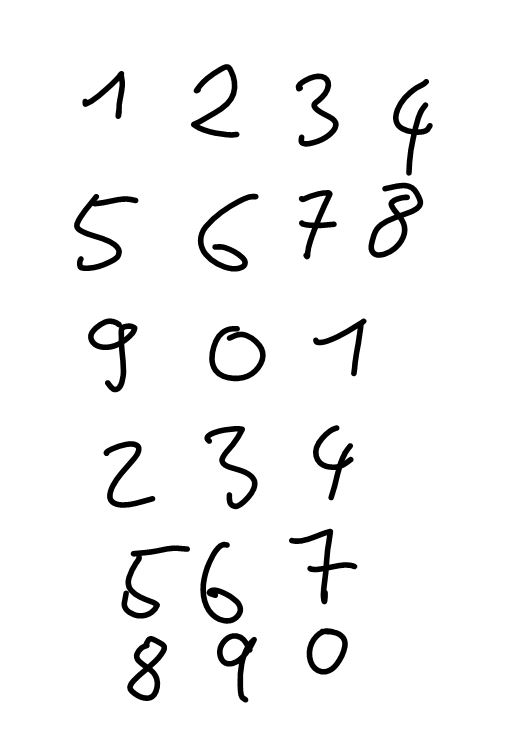 1 2 3 4
5 6 7 8
9 0 1
2 3 4
5 6 7
8 9 0